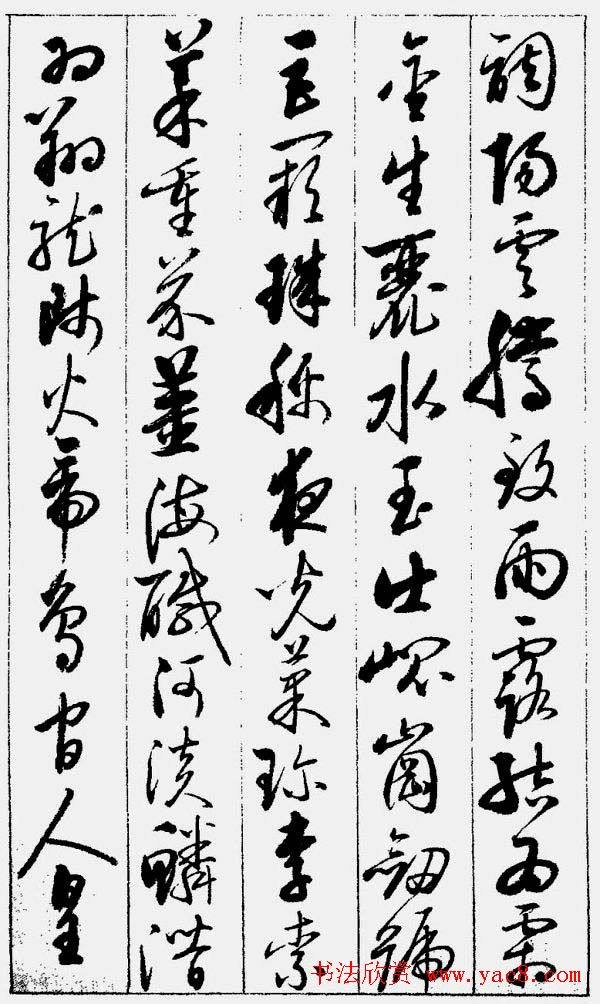 調陽雲騰致雨露結為霜
金生麗水玉出崐崗劒號
巨闕珠稱夜光菓珍李柰
菜重芥薑海醎河淡鱗潛
羽翔龍師火帝鳥官人皇
书法欣赏 www.yac8.com